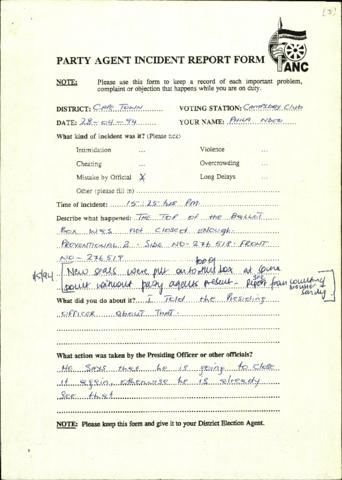 [5]
PARTY AGENT INCIDENT REPORT FORM
ANC
NOTE: Please use this form to keep a record of each important problem, complaint or objection that happens while you are on duty.
DISTRICT: CAPE TOWN VOTING STATION: CAMPSBAY CLUB
DATE: 28-04-94 YOUR NAME:
What kind of incident was it? (Please tick)
Intimidation ... Violence ...
Cheating ... Overcrowding ...
Mistake by Official X Long Delays ...
Other (please fill in)
Time of incident: 15:25 hrs PM
Describe what happened: THE TOP OF THE BALLOT
BOX WAS not closed enough.
PREVENTIONAL B - SIDE NO-276 518 - FRONT
NO-276519
New seals were put onto this box at some
point without party agents present - see report from counting
What did you do about it? I Told the Presiding
officer ABOUT THAT.
What action was taken by the Presiding Officer or other officials?
He Says that he is going to close
it again, otherwise he is already
see that
NOTE: Please keep this form and give it to your District Election Agent.